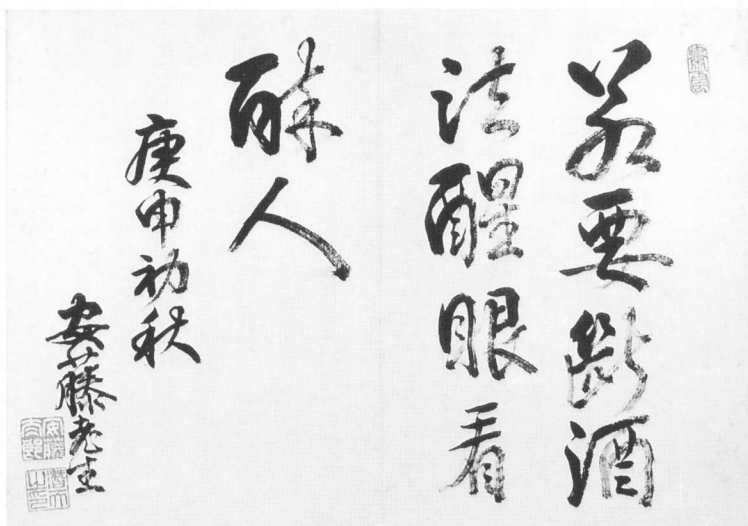 若要断酒
法醒眼看
酔人
庚申初秋
安藤老生